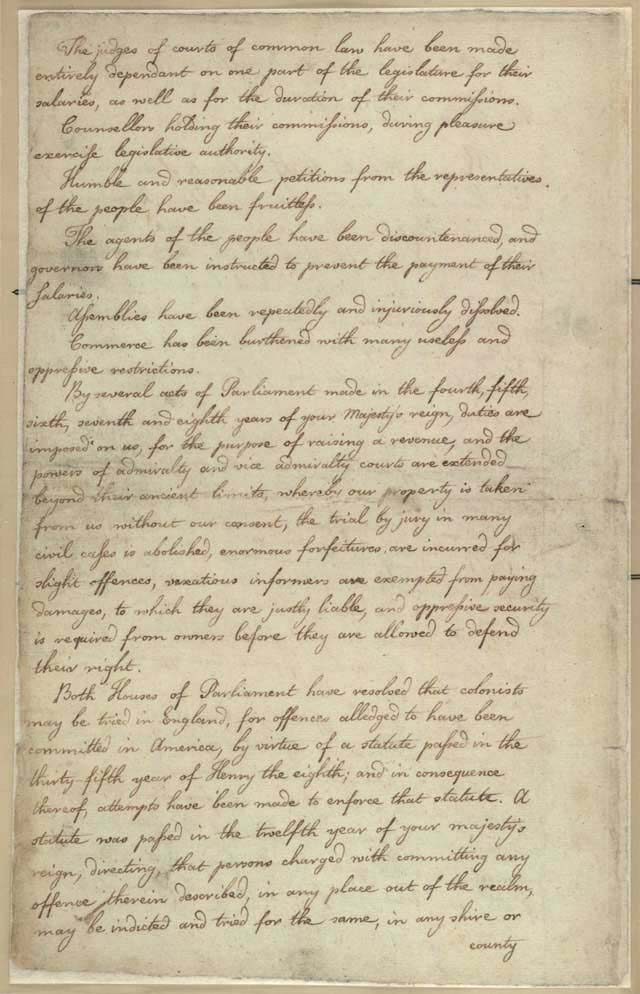 The judges of courts of common law have been made
entirely dependant on one part of the legislature for their
salaries, as well as for the duration of their commissions.
Counsellors holding their commissions, during pleasure
exercise legislative authority.
Humble and reasonable petitions from the representatives
of the people have been fruitless.
The agents of the people have been discountenanced, and
governors have been instructed to prevent the payment of their
salaries.
Assemblies have been repeatedly and injuriously dissolved.
Commerce has been burthened with many useless and
oppressive restrictions.
By several acts of Parliament made in the fourth, fifth,
sixth, seventh and eighth years of your Majesty's reign, duties are
imposed on us, for the purpose of raising a revenue, and the
powers of admiralty and vice admiralty courts are extended
beyond their ancient limits, whereby our property is taken
from us without our consent, the trial by jury in many
civil cases is abolished, enormous forfeitures are incurred for
slight offences, vexatious informers are exempted from paying
damages, to which they are justly liable, and oppressive security
is required from owners before they are allowed to defend
their right.
Both Houses of Parliament have resolved that colonists
may be tried in England, for offences alledged to have been
committed in America, by virtue of a statute passed in the
thirty fifth year of Henry the eighth; and in consequence
thereof, attempts have been made to enforce that statute. A
statute was passed in the twelfth year of your majesty's
reign, directing, that persons charged with committing any
offence therein described, in any place out of the realm,
may be indicted and tried for the same, in any shire or
county